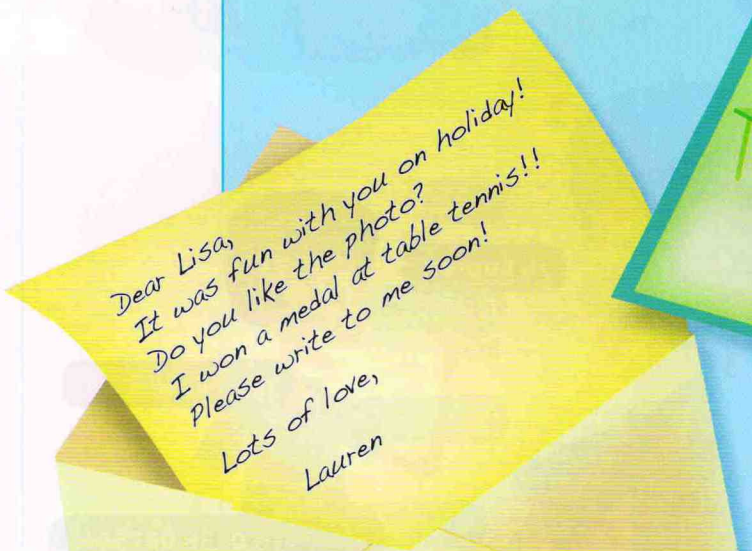 Dear Lisa,
It was fun with you on holiday!
Do you like the photo?
I won a medal at table tennis!!
Please write to me soon!
Lots of love,
Lauren